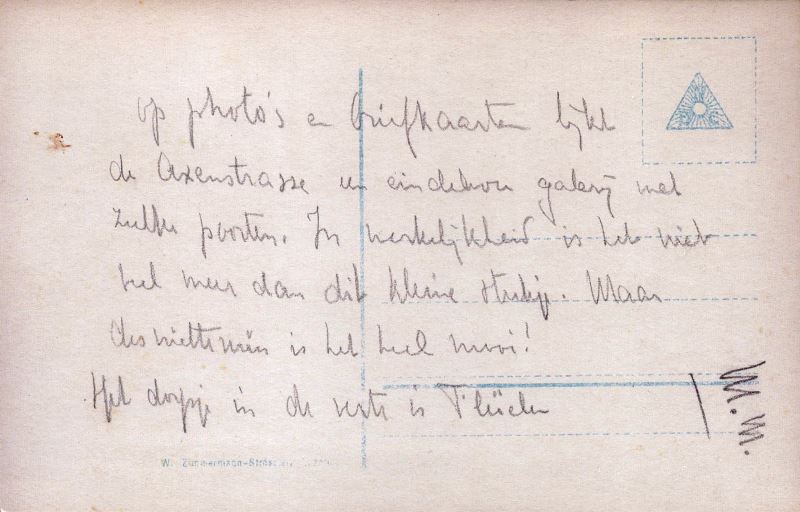 op photo's en briefkaarten lijkt
de Axenstrasse een eindelooze galerij met
zulke poorten. In werkelijkheid is het niet
veel meer dan dit kleine stukje. Maar
desniettemin is het heel mooi!
Het dorpje in de verte is Flüelen
M.M.
W. Zimmermann-